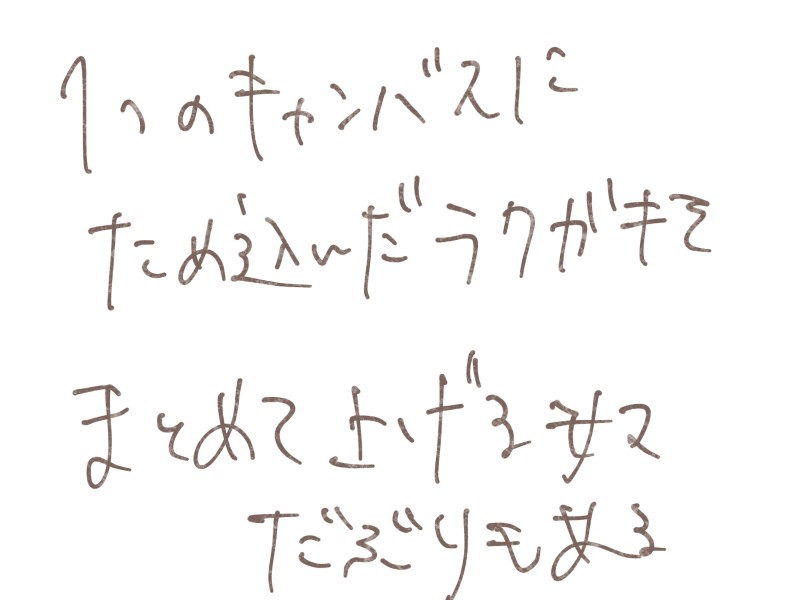 1つのキャンバスに
ため込んだラクガキを
まとめて上げる奴
だぶりもある